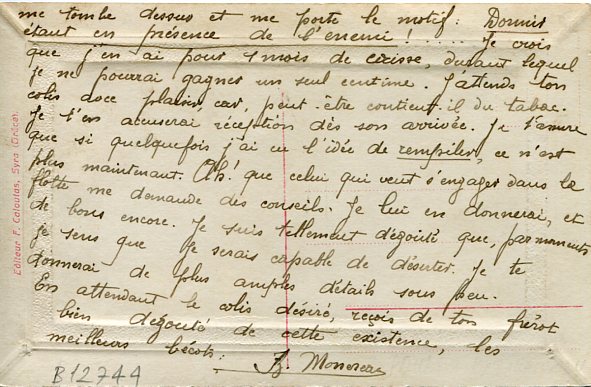 me tombe dessus et me porte le motif : Dormir
étant en présence de l'ennemi ! ..... Je crois
que j'en ai pour 1 mois de cerisse, durant lequel
je ne pourrai gagner un seul centime. J'attends ton
colis avec plaisir, car, peut-être contient-il du tabac.
Je t'en accuserai réception dès son arrivée. Je t'assure
que si quelquefois j'ai eu l'idée de rempiler, ce n'est
plus maintenant. Ah ! que celui qui veut s'engager dans la
flotte me demande des conseils. Je lui en donnerai, et
de bons encore. Je suis tellement dégoûté que, par moments
je sens que je serais capable de déserter. Je te
donnerai de plus amples détails sous peu.
En attendant le colis désiré, reçois de ton frérot
bien dégouté de cette existence, les
meilleurs bécots.
Monereau
B12744
Editeur F. Caloutas, Syra (Grèce)